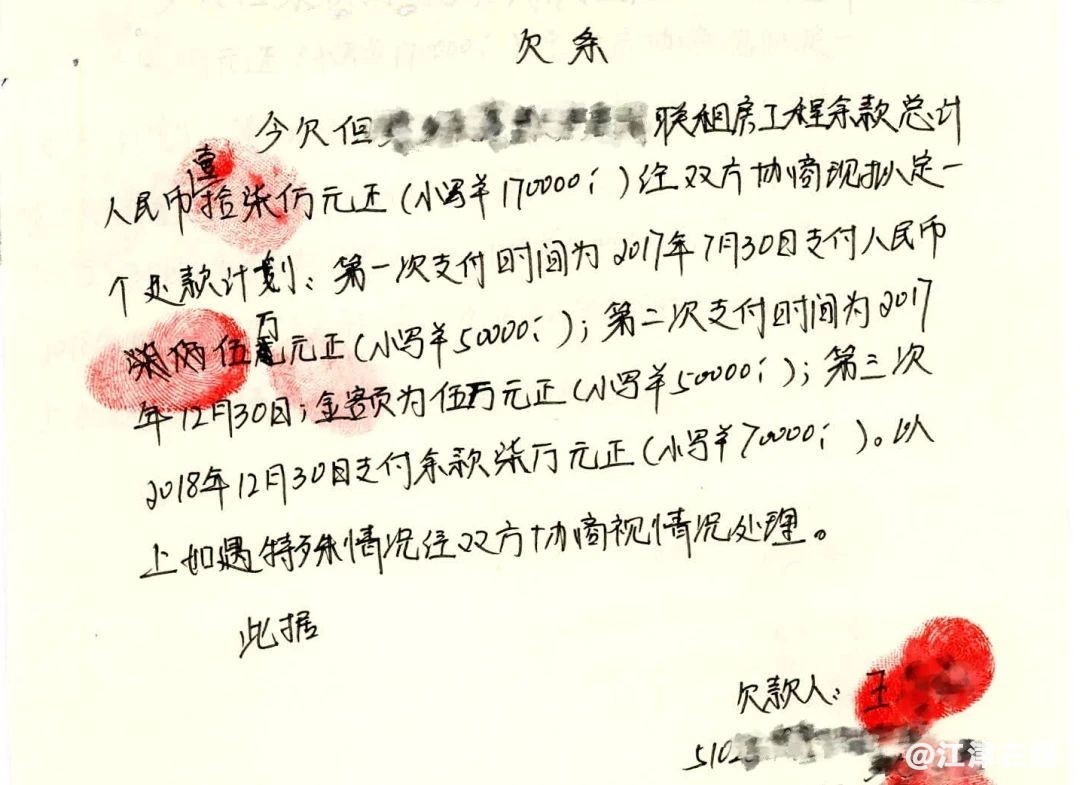 欠条
今欠但 联祖房工程余款总计
人民币壹拾柒仟元正(小写羊170000;)经双方协商现拟定一
个还款计划:第一次支付时间为2017年7月30日支付人民币
伍万元正(小写羊50000;);第二次支付时间为2017
年12月30日;金额为伍万元正(小写羊50000;);第三次
2018年12月30日支付余款柒万元正(小写羊70000;)。以
上如遇特殊情况经双方协商视情况处理。
此据
欠款人:王
510
@江津